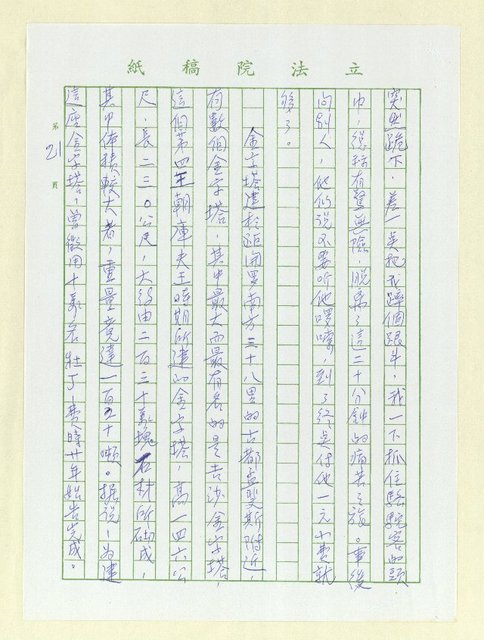 立法院稿紙
突然跪下,差一点把我蹄個跟斗,我一下抓住駱駝客的頭
巾,總算有驚無險,脫离了這二十分鐘的痛苦之旅。事後
向別人,他們說不要听他嚕嗦,到了終点付他一元小費就
够了。
金字塔建於距開罗南方三十八里的古都孟斐斯附近,
有數個金字塔,其中最大而最有名的是吉沙金字塔,
這個第四王朝庫夫王時期所建的金字塔,高一四六公
尺,長二三〇公尺,大約由二百三十萬塊石材所砌成,
其中体積較大者,重量竟達一百五十噸。据說,為建
這座金字塔,曾徵用十萬名壯丁,費時廿年始告完成。
第21頁